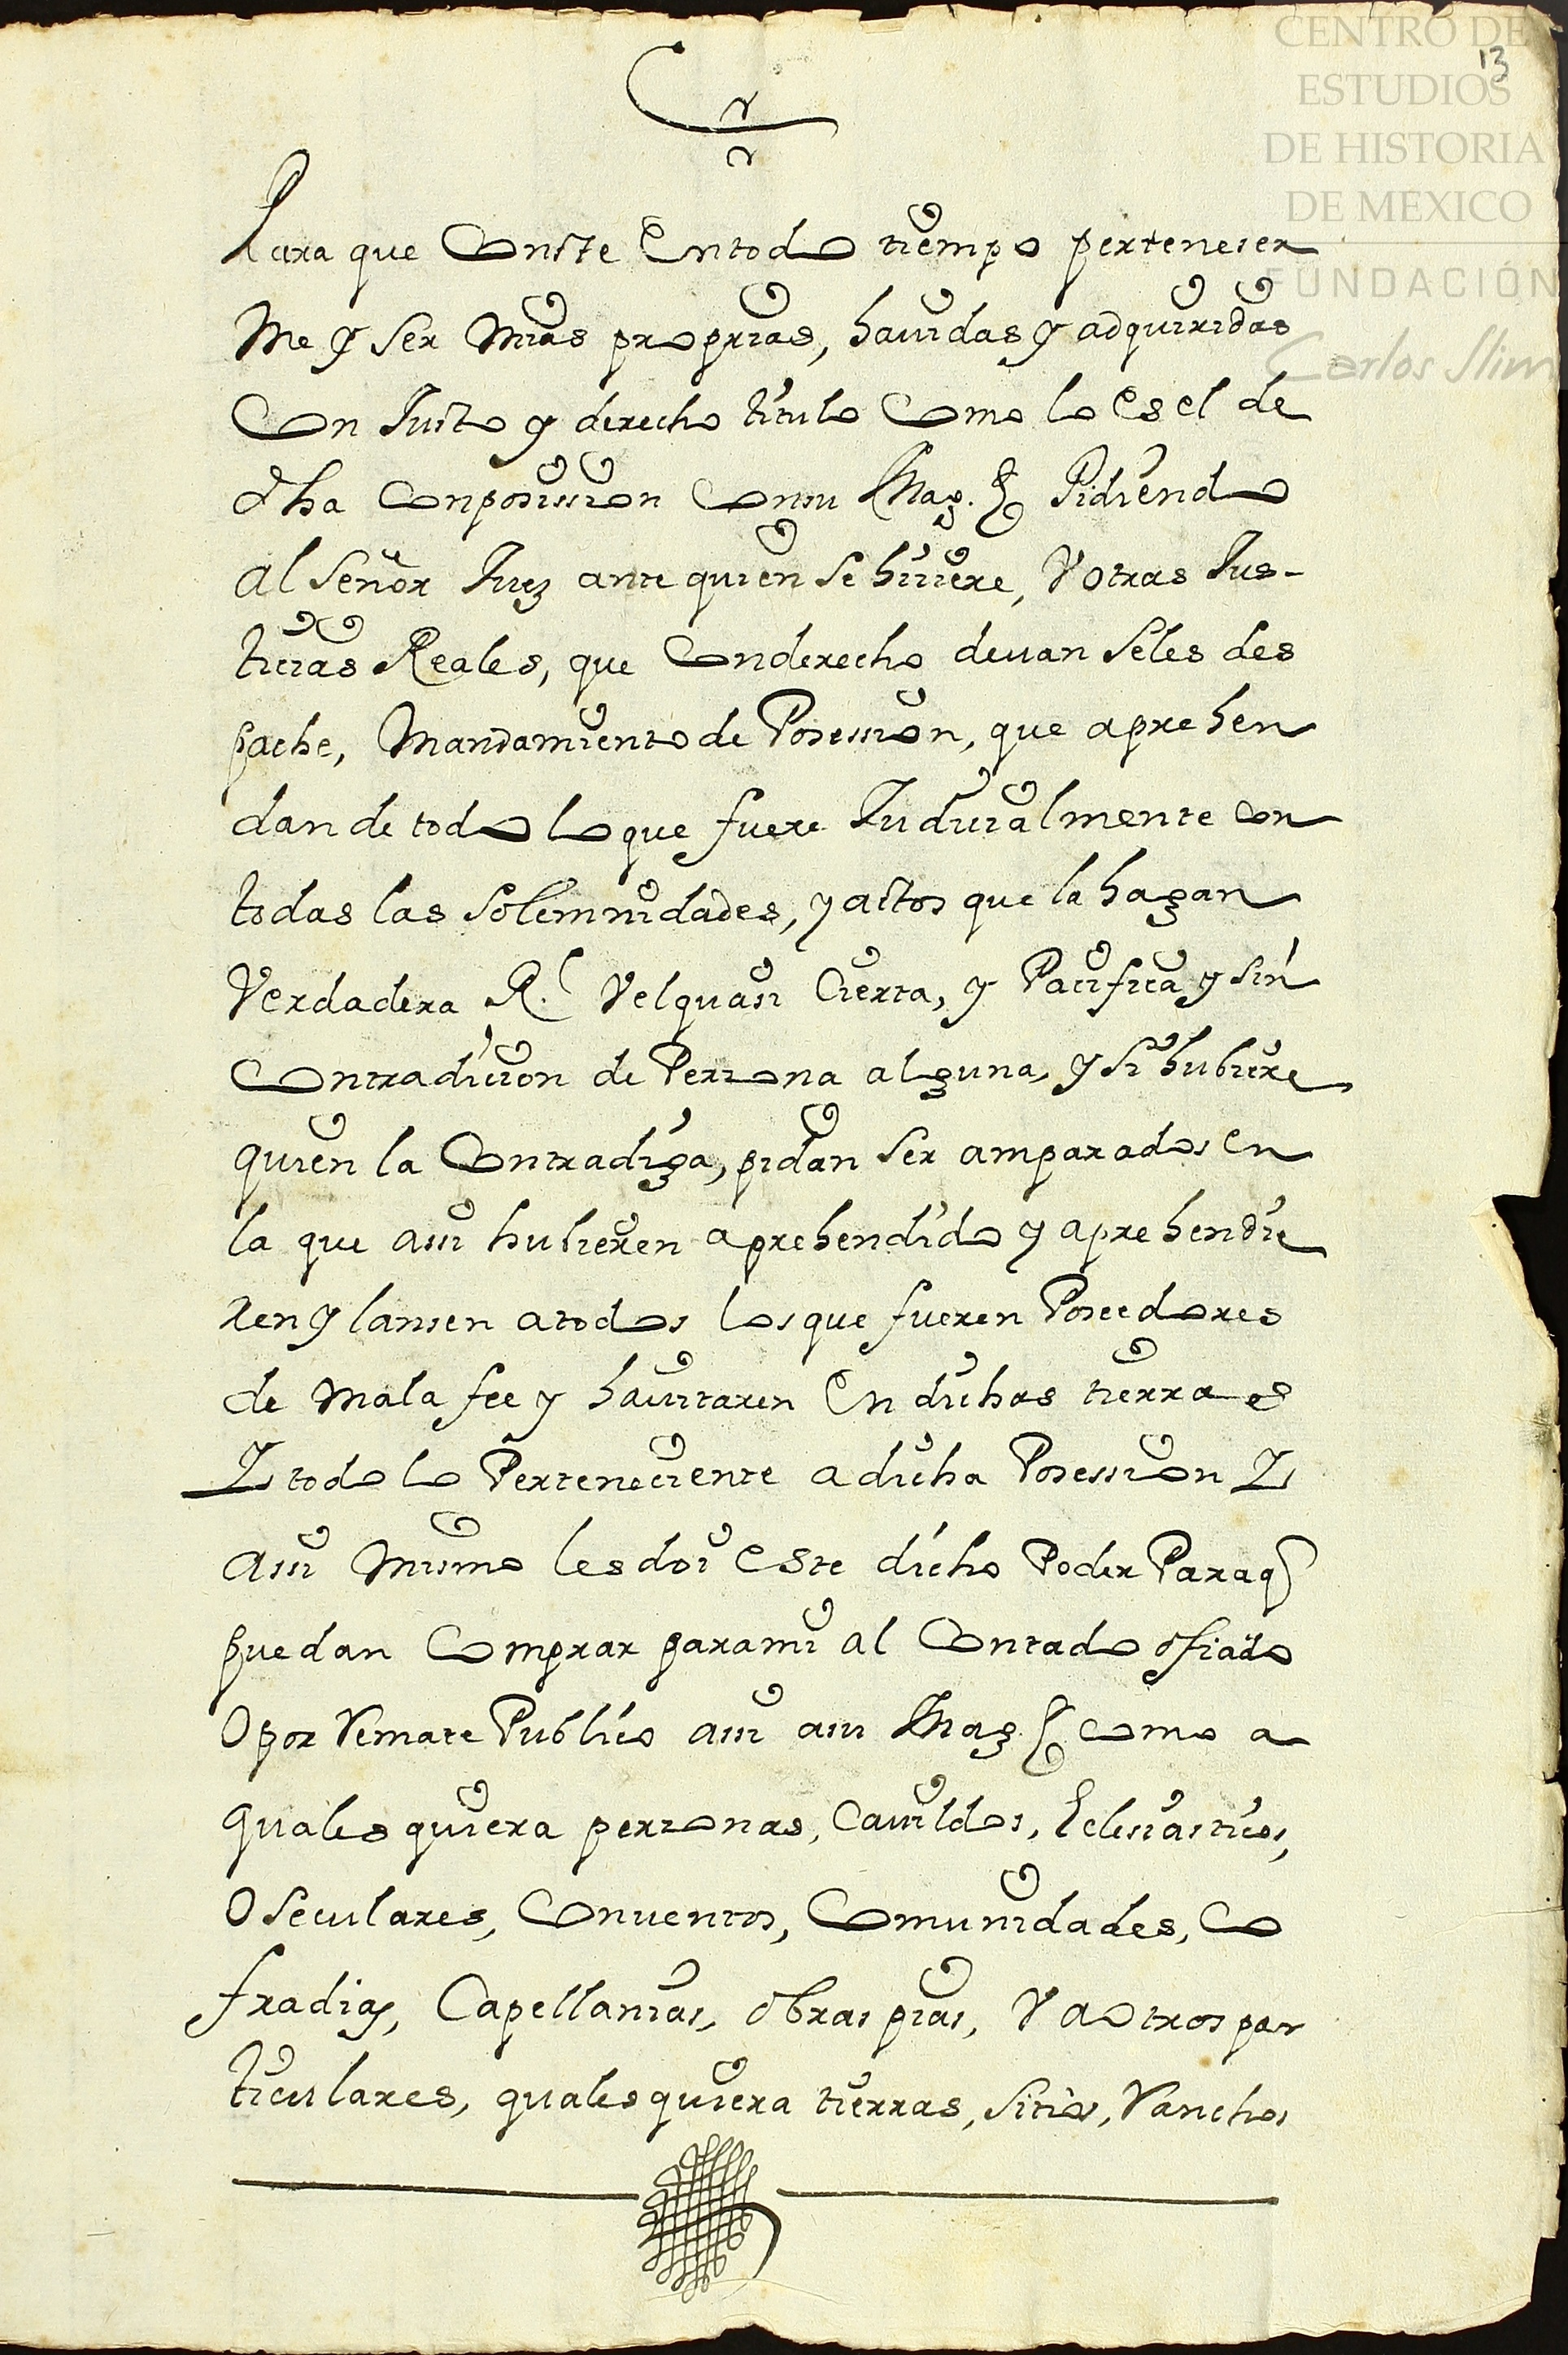 CENTRO DE
ESTUDIOS
DE HISTORIA
DE MEXICO
FUNDACIÓN
Carlos Slim
13
Para que Conste Entodo tiempo perteneser
Me y ser Mias proprias, havidas y adquiridas
Con Justo y derecho titulo Como lo es el de
dha Conposission Consu Mag.d Pidiendo
al Señor Juez ante quien se hiciere, V otras Jus-
ticias Reales, que Conderecho devan seles des
pache, Mandamiento de Posession, que aprehen
dan de todo lo que fuere Judicialmente con
todas las solemnidades, y actos que la hagan
Verdadera R.l Velquasi Cierta, y Pacifica y sin
Contradicion de Perzona alguna, y si hubiere
quien la Contradiga, pidan ser amparados en
la que assi hubieren aprehendido y aprehendie
ren y lansen atodos los que fueren Poseedores
de Mala fee y havitaren En dichas tierras
Y todo lo Perteneciente a dicha Posession Y
assi Mismo les doi este dicho Poder Paraq
puedan Comprar parami al Contado o fiado
O por Remate Publico assi asu Mag.d como a
quales quiera perzonas, Cavildos, Eclesiasticos,
O Seculares, Conventos, Comunidades, Co
fradias, Capellanias, obras pias, V a otros par
ticulares, quales quiera tierras, sitios, Ranchos